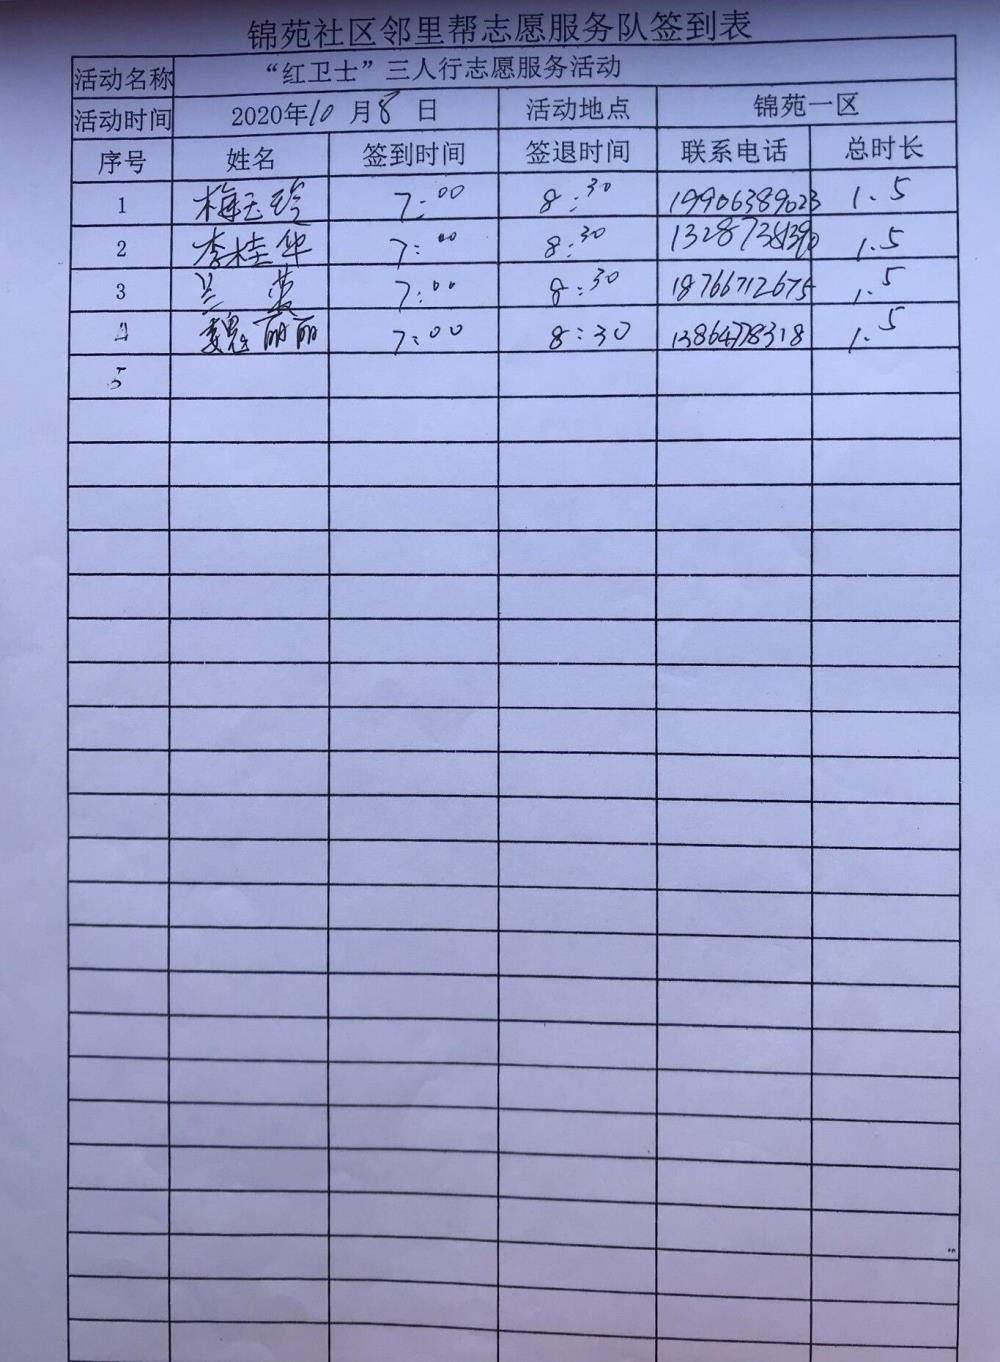 锦苑社区邻里帮志愿服务队签到表
活动名称 “红卫士”三人行志愿服务活动
活动时间 2020年10月8日 活动地点 锦苑一区
序号 姓名 签到时间 签退时间 联系电话 总时长
1 梅玉玲 7:00 8:30 19906389023 1.5
2 李桂华 7:00 8:30 1.5
3 兰 7:00 8:30 18766712675 1.5
4 魏丽丽 7:00 8:30 1.5
5